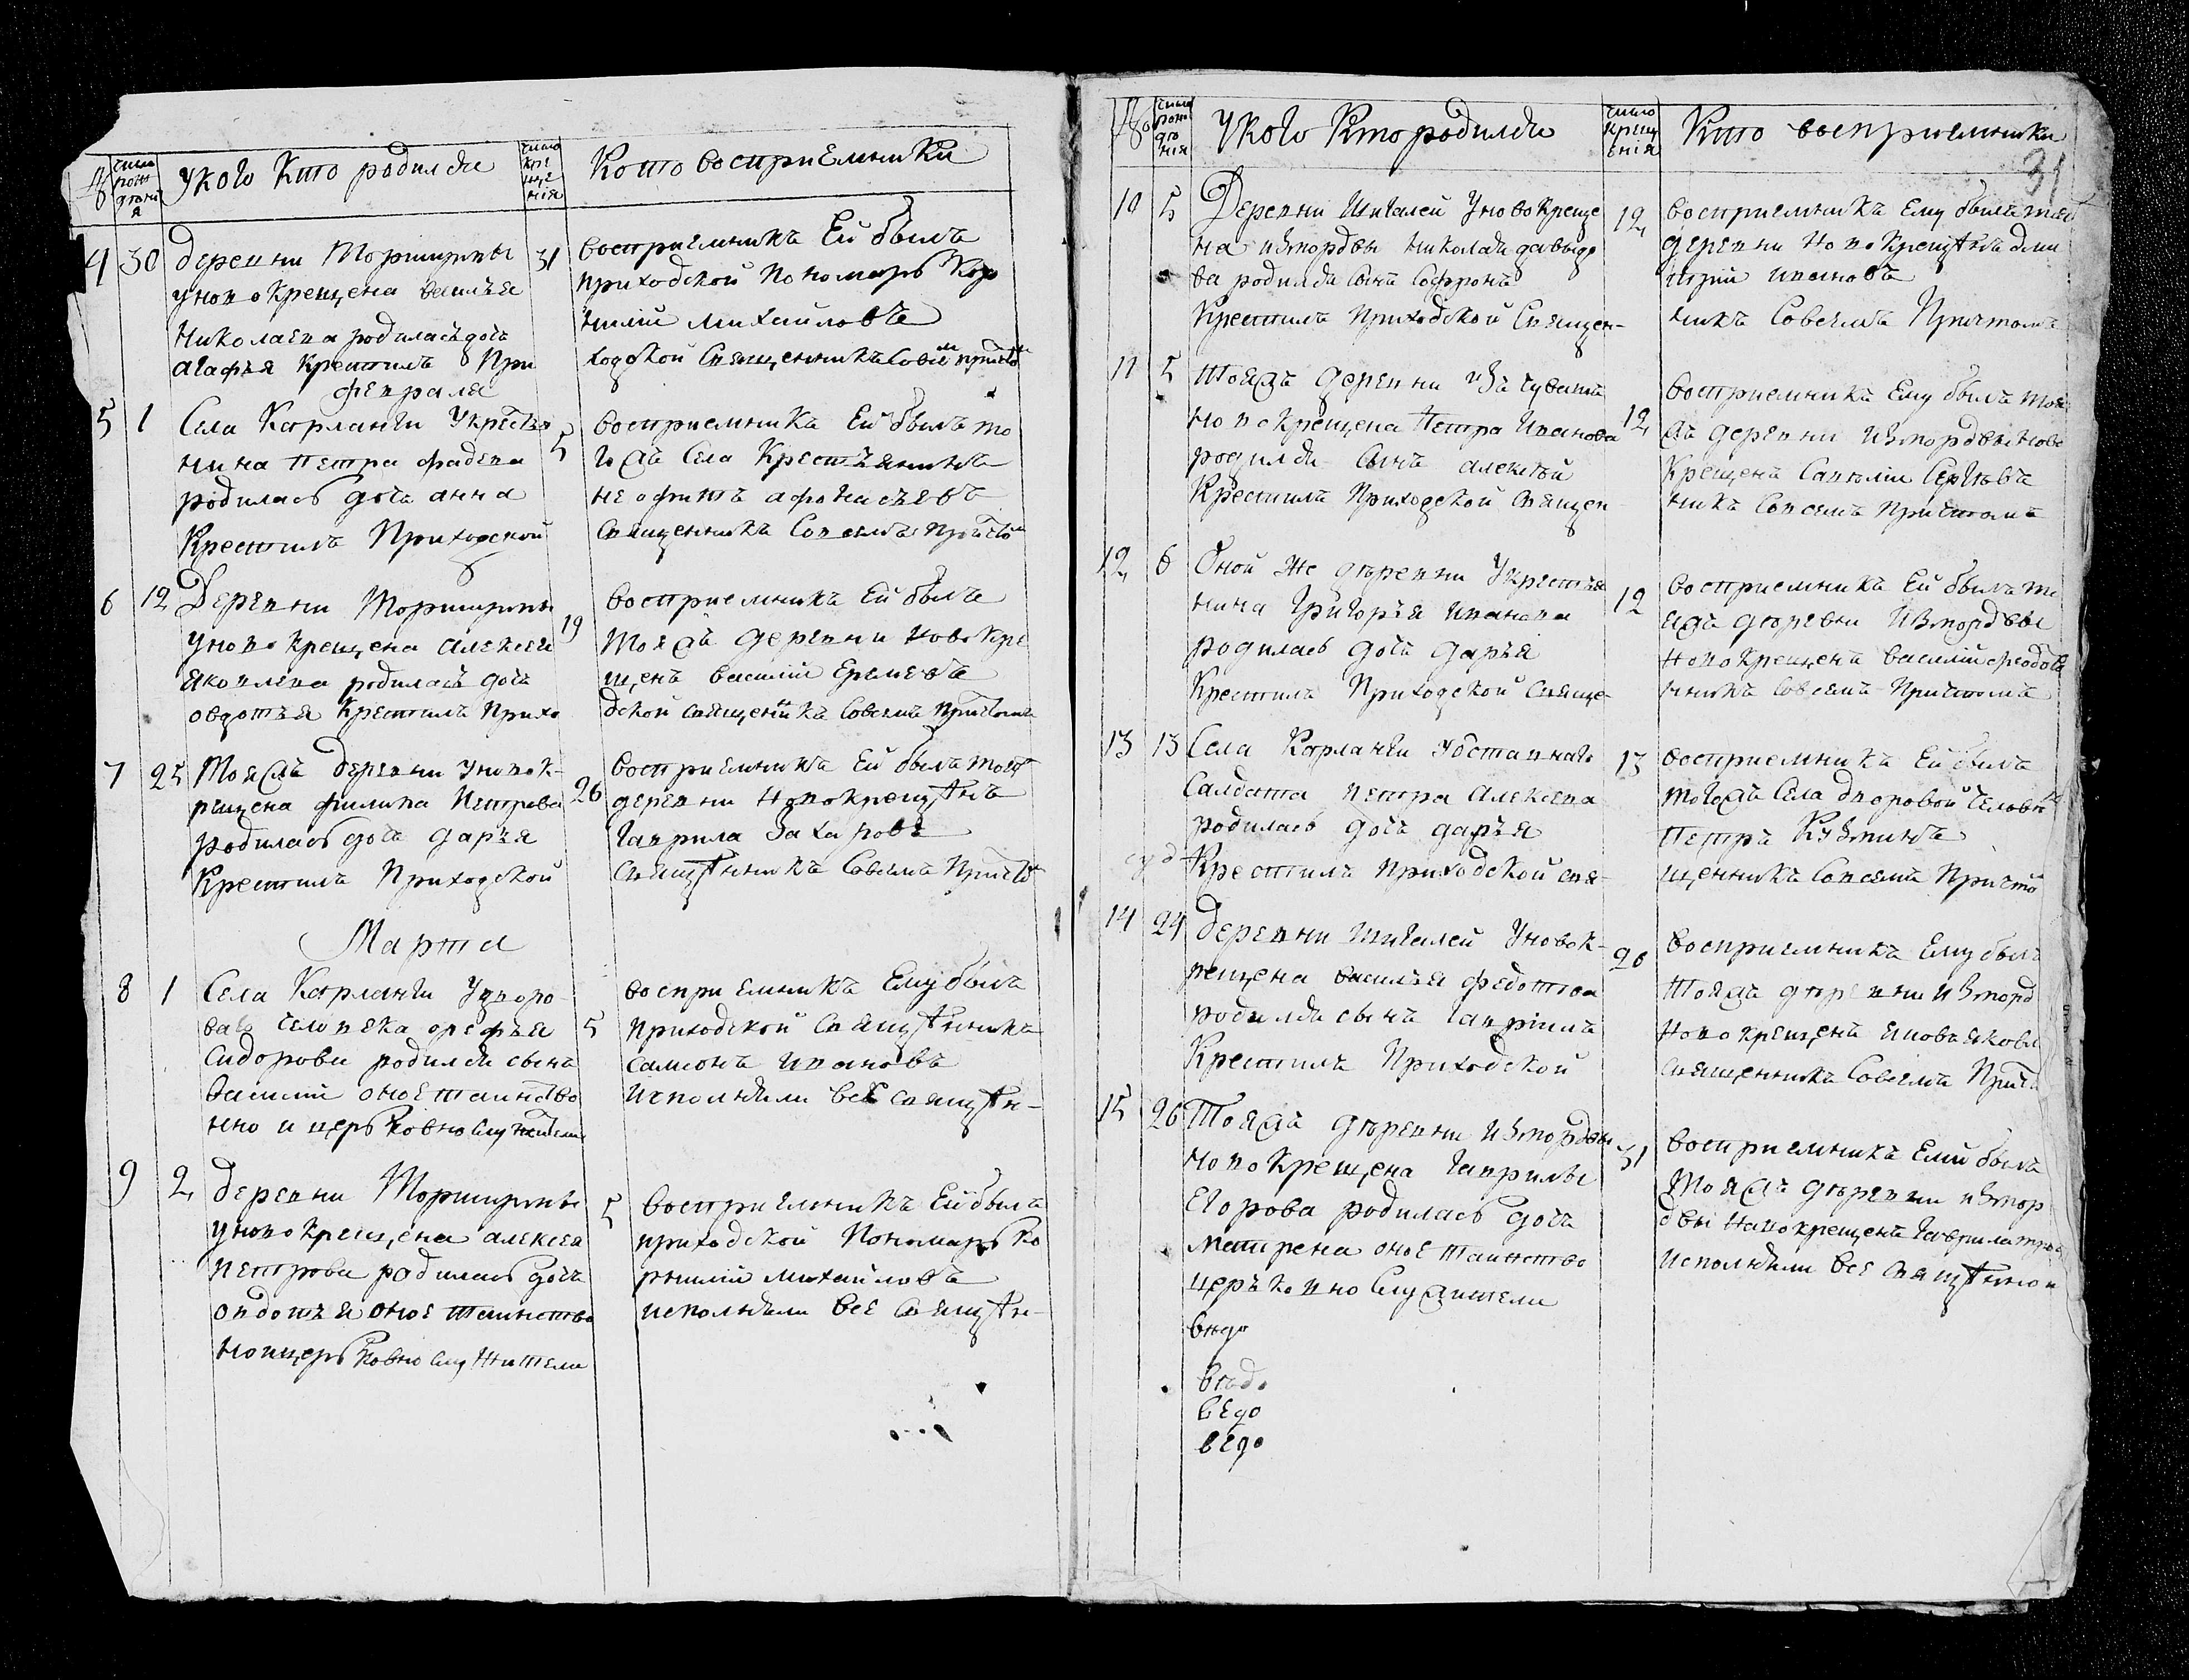 №
число рождения
У кого кто родился
число крещения
Кто восприемники
4 30 деревни Торширмы
у новокрещена василья
николаева родилась дочь
агафья Крестилъ При
31 восприемникъ Ей былъ
приходской Пономарь Кор
нилий михайловъ
ходской Священникъ Совсем причтом
февраля
5 1 Села Карланги У крестья
нина Петра фадеева
родилась дочь анна
Крестилъ Приходской
5 восприемникъ Ей былъ то
гожъ Села Крестьянинъ
неофитъ афонасьевъ
Священникъ Совсемъ Причтом
6 12 Деревни Торширмы
у новокрещена алексея
яковлева родилась дочь
овдотья Крестилъ Прихо
19 восприемникъ Ей былъ
тояжъ деревни новокре
щенъ василий Еремеевъ
дской священникъ Совсемъ Причтомъ
7 25 Тояжъ деревни у новок-
рещена филипа Петрова
родилась дочь дарья
Крестилъ Приходской
26 восприемникъ Ей былъ тояж
деревни новокрещенъ
гаврила Захаровъ
Священникъ Совсемъ Причтом
Марта
8 1 Села Карланги У дворо-
ваго человека орефья
Сидорова родился сынъ
василий оное таинство
нно и церковнослужители
5 восприемникъ Ему былъ
приходской Священникъ
самсонъ ивановъ
исполняли все священ-
9 2 деревни Торширмы
у новокрещена алексея
петрова родилась дочь
овдотья оное таинство
но и церковнослужители
5 восприемникъ Ей былъ
приходской Пономарь Ко
рнилий михайловъ
исполняли все священ-
№
число рождения
У кого Кто родился
число крещения
Кто восприемники
31
10 5 Деревни Шигалей У новокреще
на измордвы николая давыдо
ва родился сынъ Софронъ
Крестилъ Приходской Священ-
12 восприемникъ Ему былъ тояж
деревни новокрещенъ дми
трий ивановъ
никъ Совсемъ Причтомъ
11 5 Тояжъ деревни изъ чувашъ
новокрещена Петра Иванова
родился сынъ алексей
Крестилъ Приходской Священ
12 восприемникъ Ему былъ тоя
жъ деревни измордвы ново
крещенъ Савелий Сергеевъ
никъ Совсемъ Причтомъ
12 6 Оной же деревни У крестья
нина Григорья Иванова
родилась дочь дарья
Крестилъ Приходской Свяще-
12 восприемникъ Ей былъ то
яжъ деревни измордвы
новокрещенъ василий феодотов
нникъ Совсемъ Причтомъ
13 13 Села Карланги Уотставнаго
Салдата петра алексеева
родилась дочь дарья
Крестилъ Приходской свя-
13 восприемникъ Ей былъ
тогожъ Села дворовой человек
Петръ Кузминъ
щенникъ Совсемъ Причто
14 24 деревни шигалей У новок-
рещена василья федотова
родился сынъ гавриилъ
Крестилъ Приходской
26 восприемникъ Ему былъ
тояжъ деревни изморд
новокрещенъ
священникъ Совсемъ Причт
15 26 Тояжъ деревни измордвы
новокрещена гаврилы
Егорова родилась дочь
матрена оное таинство
церьковнослужители
31 восприемникъ Ей былъ
тояжъ деревни измор
двы новокрещенъ гаврила
исполняли все священно и
ведо
вед.
ведо
ведо